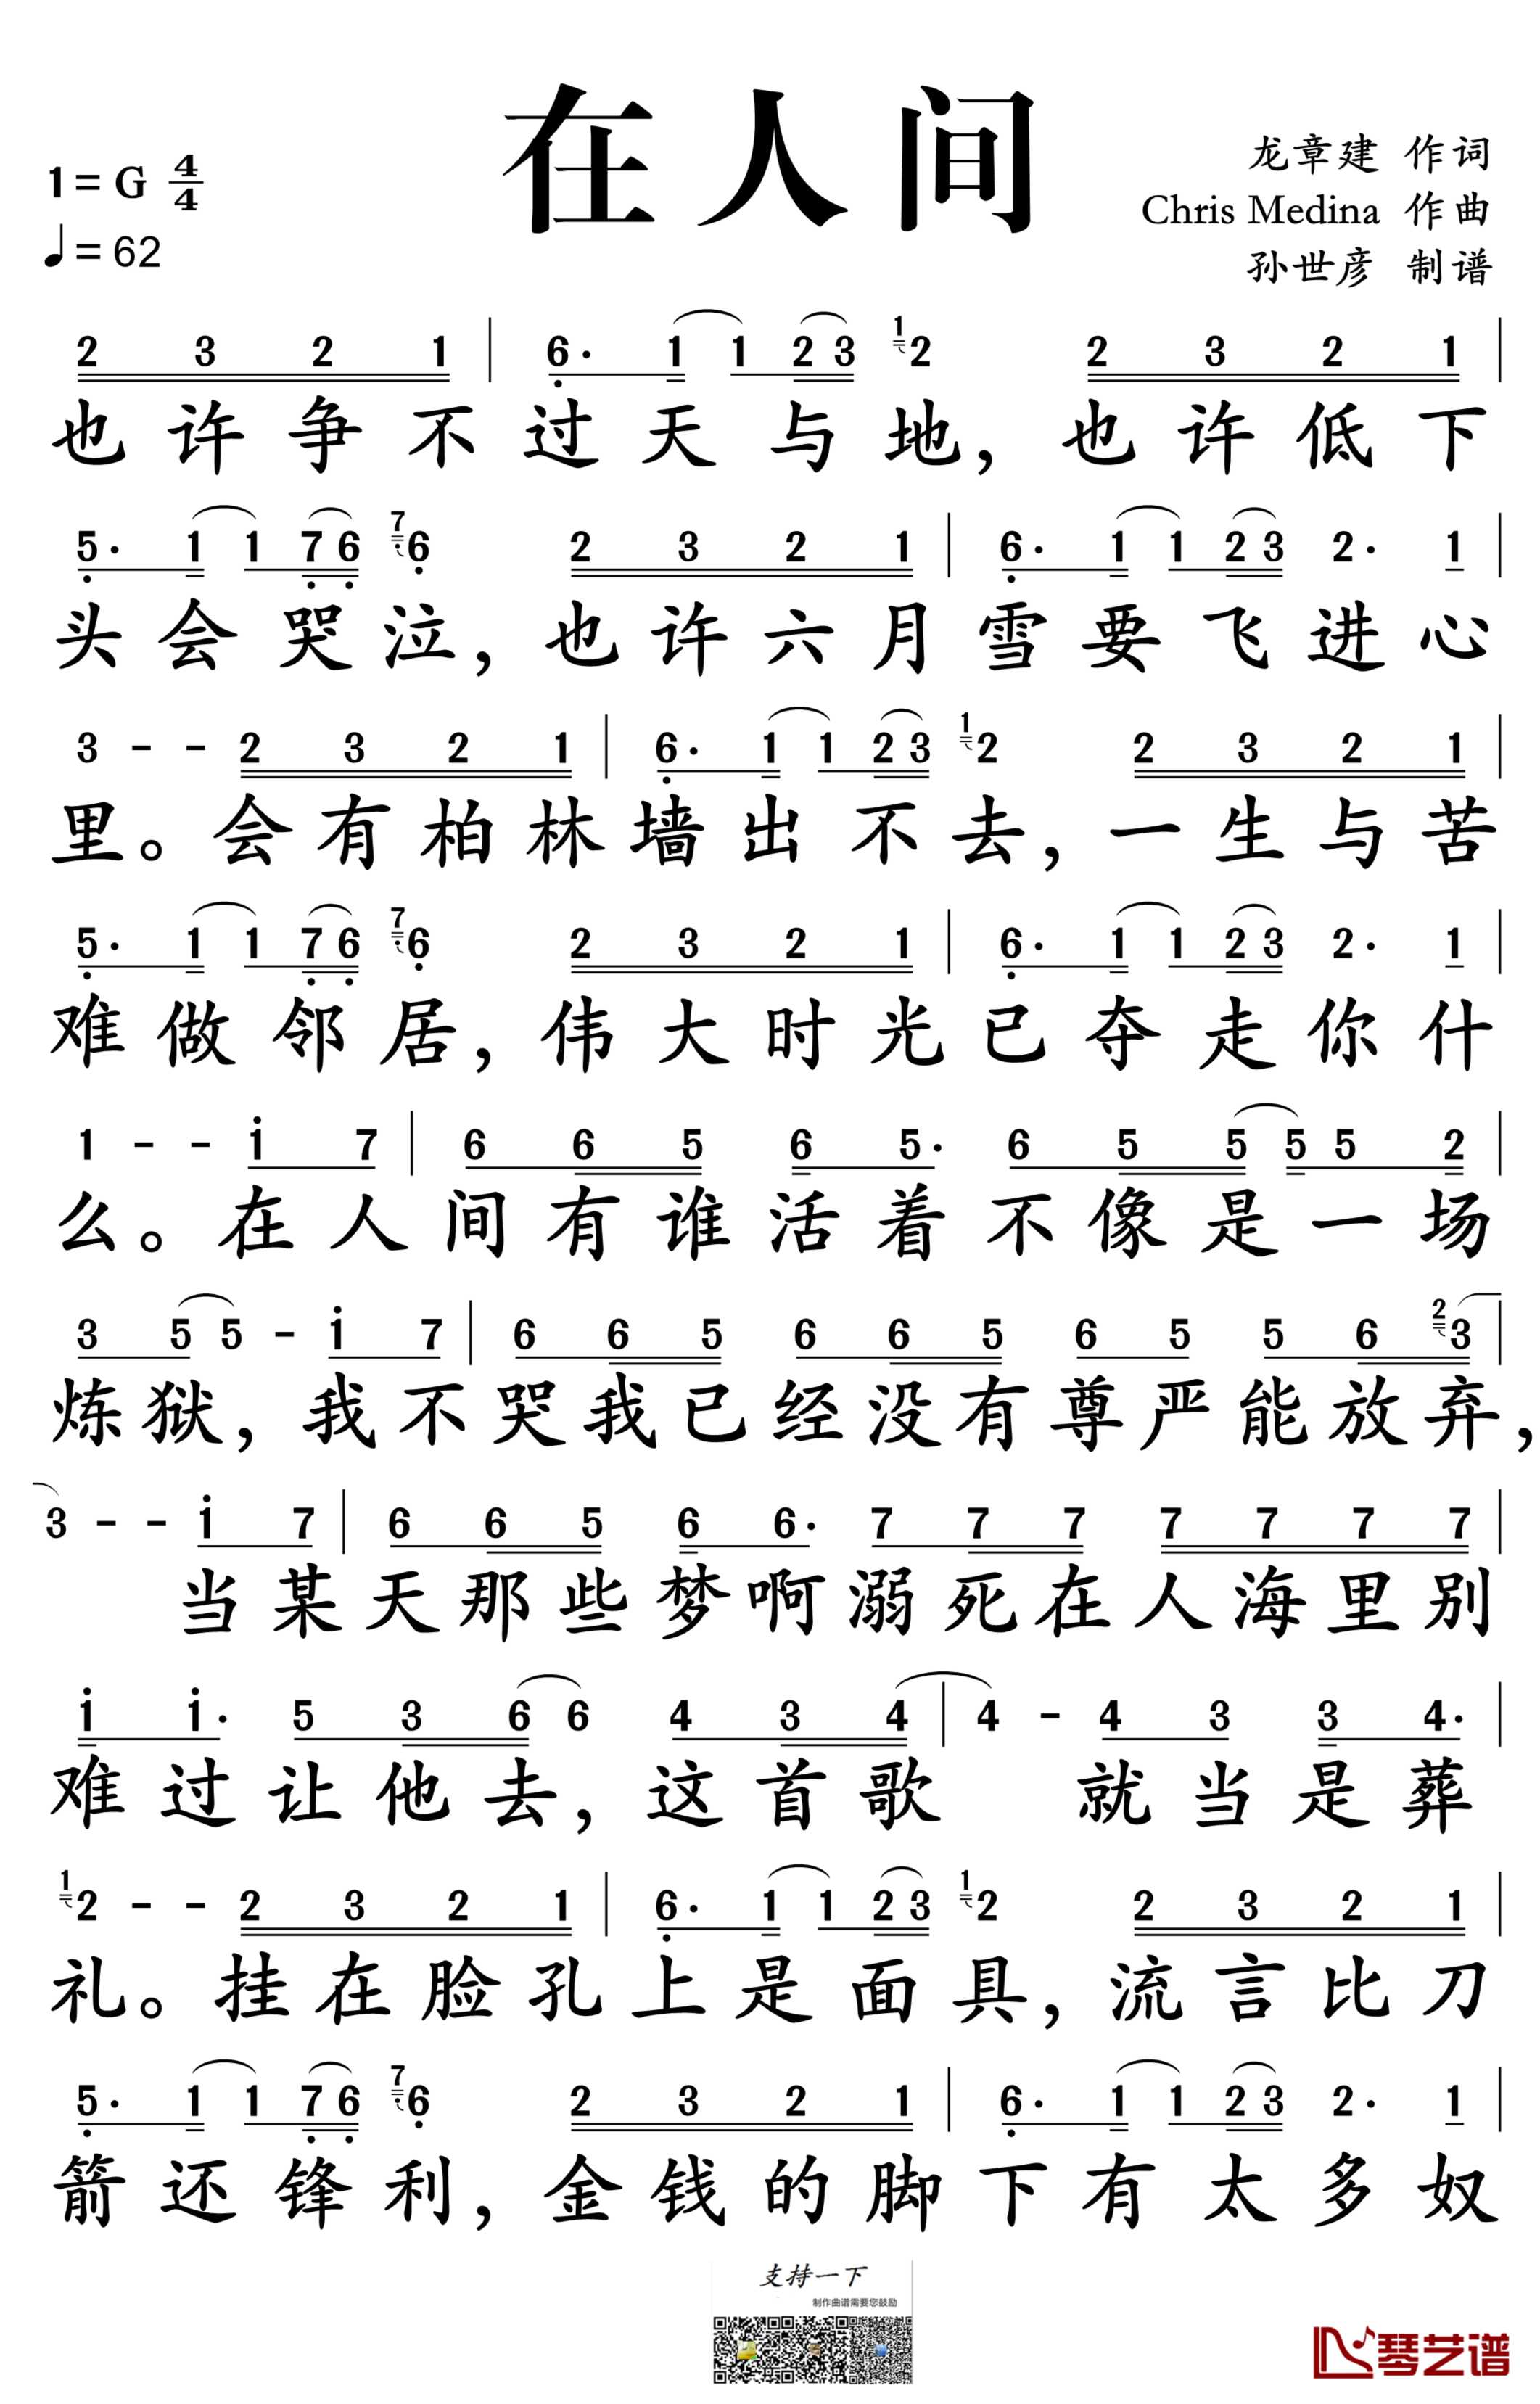 在人间
1=G 4/4
♩=62
龙章建 作词
Chris Medina 作曲
孙世彦 制谱
2 3 2 1 | 6· 1 1 2 3 1 2 2 3 2 1 |
也许争不过天与地，也许低下
5· 1 1 7 6 7 6 2 3 2 1 | 6· 1 1 2 3 2· 1 |
头会哭泣，也许六月雪要飞进心
3 - - 2 3 2 1 | 6· 1 1 2 3 1 2 2 3 2 1 |
里。会有柏林墙出不去，一生与苦
5· 1 1 7 6 7 6 2 3 2 1 | 6· 1 1 2 3 2· 1 |
难做邻居，伟大时光已夺走你什
1 - - i 7 | 6 6 5 6 5· 6 5 5 5 5 2 |
么。在人间有谁活着不像是一场
3 5 5 - i 7 | 6 6 5 6 6 5 6 5 5 6 2 3 |
炼狱，我不哭我已经没有尊严能放弃，
3 - - i 7 | 6 6 5 6 6· 7 7 7 7 7 7 7 |
当某天那些梦啊溺死在人海里别
i i· 5 3 6 6 4 3 4 | 4 - 4 3 3 4· |
难过让他去，这首歌 就当是葬
1 2 - - 2 3 2 1 | 6· 1 1 2 3 1 2 2 3 2 1 |
礼。挂在脸孔上是面具，流言比刀
5· 1 1 7 6 7 6 2 3 2 1 | 6· 1 1 2 3 2· 1 |
箭还锋利，金钱的脚下有太多奴
支持一下
制作曲谱需要您鼓励
琴艺谱